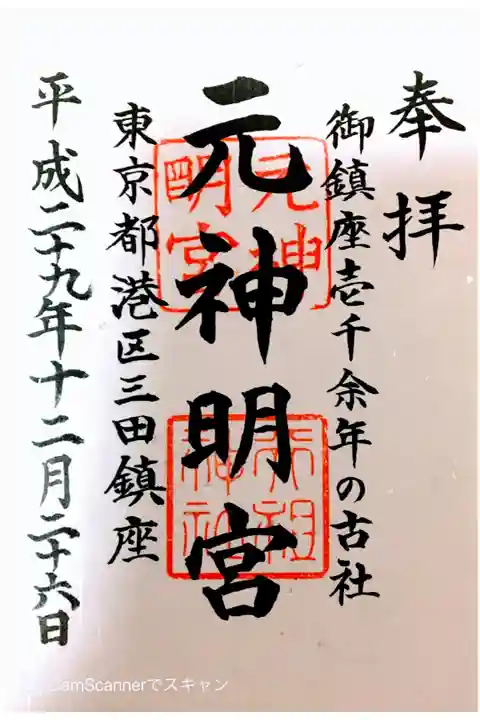 奉拝
御鎮座壱千余年の古社
元神明宮
東京都港区三田鎮座
平成二十九年十二月二十六日
元神
明宮
CamScannerでスキャン